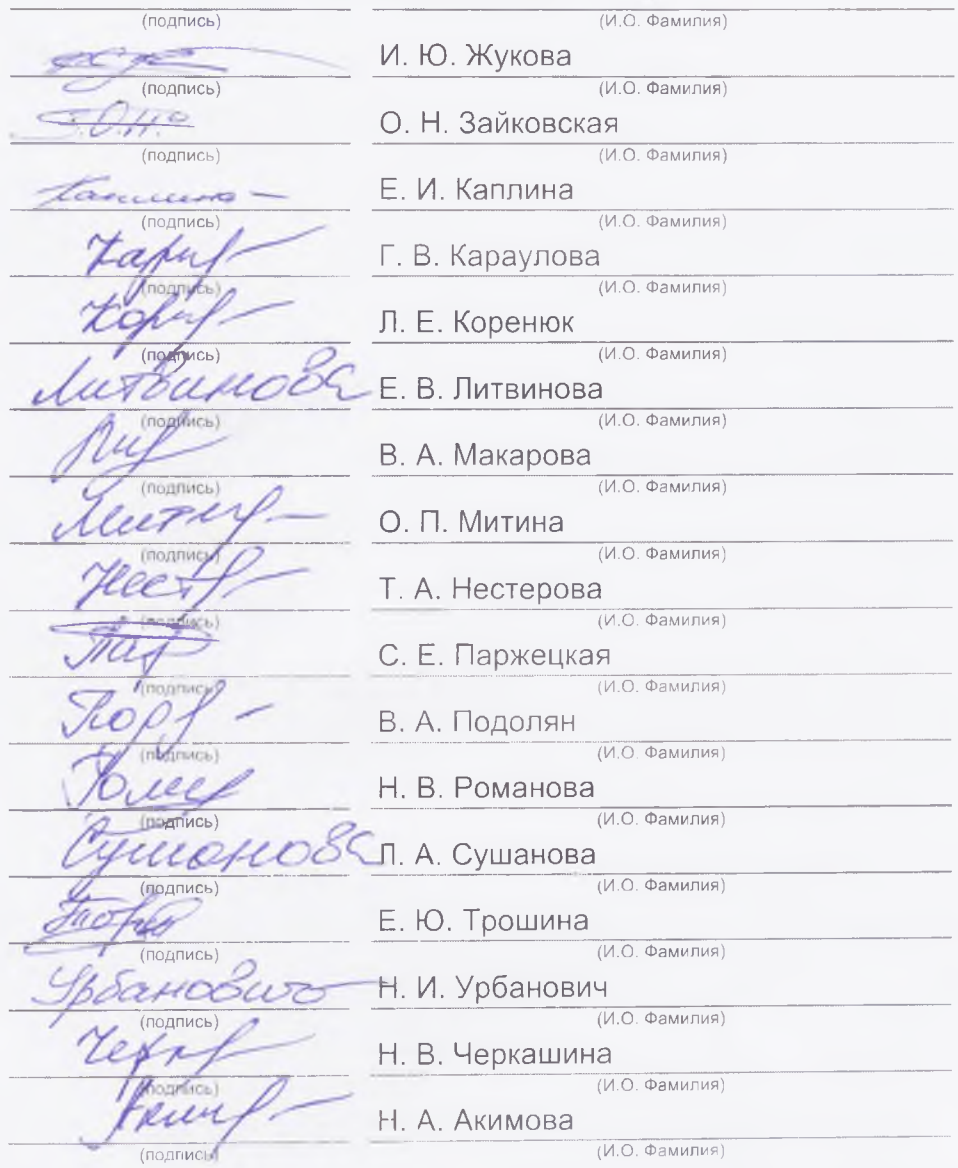 (подпись) (И.О. Фамилия)
И. Ю. Жукова
(подпись) (И.О. Фамилия)
З.О.Н. О. Н. Зайковская
(подпись) (И.О. Фамилия)
Каплина Е. И. Каплина
(подпись) (И.О. Фамилия)
Г. В. Караулова
(подпись) (И.О. Фамилия)
Л. Е. Коренюк
(подпись) (И.О. Фамилия)
Литвинова Е. В. Литвинова
(подпись) (И.О. Фамилия)
В. А. Макарова
(подпись) (И.О. Фамилия)
О. П. Митина
(подпись) (И.О. Фамилия)
Т. А. Нестерова
(подпись) (И.О. Фамилия)
С. Е. Паржецкая
(подпись) (И.О. Фамилия)
В. А. Подолян
(подпись) (И.О. Фамилия)
Н. В. Романова
(подпись) (И.О. Фамилия)
Сушанова Л. А. Сушанова
(подпись) (И.О. Фамилия)
Е. Ю. Трошина
(подпись) (И.О. Фамилия)
Урбанович Н. И. Урбанович
(подпись) (И.О. Фамилия)
Н. В. Черкашина
(подпись) (И.О. Фамилия)
Н. А. Акимова
(подпись) (И.О. Фамилия)